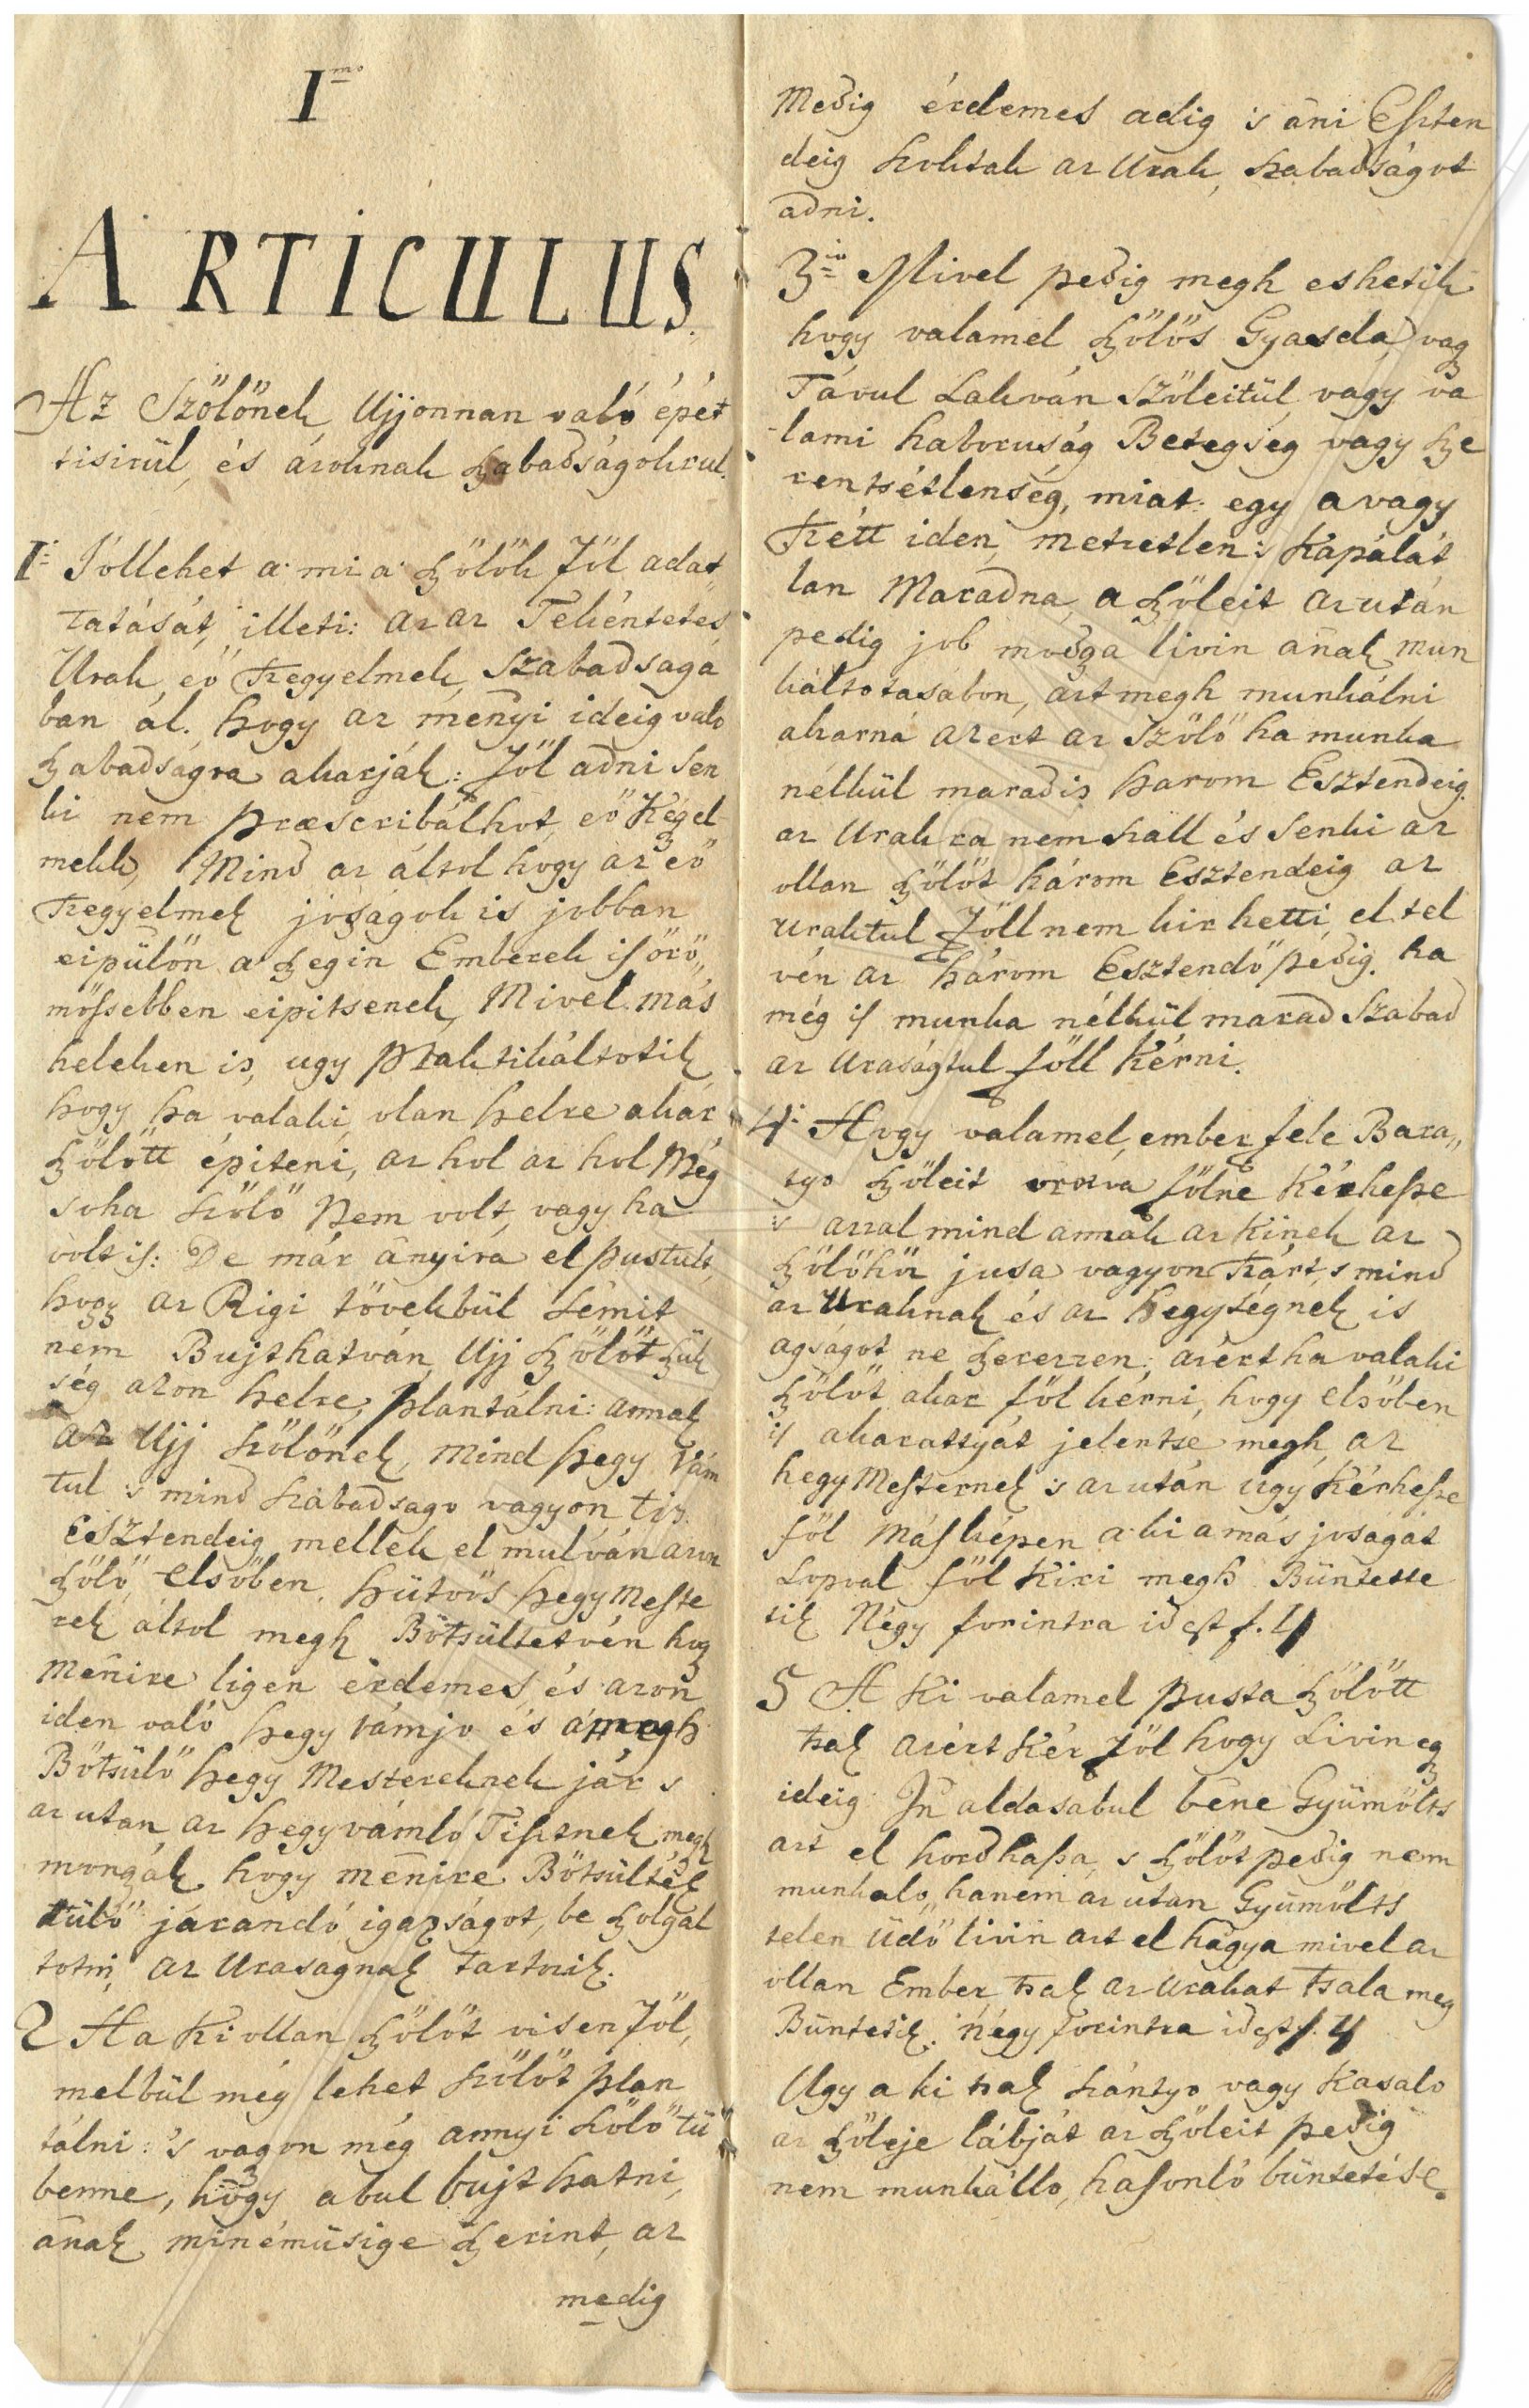 I mo
ARTICULUS.
Az Szőlőnek Ujjonnan való épét
tisirül, és azoknak szabadságokrul.
I: Jóllehet a mi a szőlők föl adat,,
tatását, illeti: az az Tekéntetes
Urak eő kegyelmek, Szabadsagá
ban ál. hogy az menyi ideig való
szabadságra akarják: föl adni sen
ki nem praescribálhot, eő Kegel
mekk, Mind az áltol hogy az eő
kegyelmek joságok is jobban
eipülön a szegin Emberek is örö,,
mössebben eipitsenek, Mivel más
heleken is, ugy Praktikáltotik
hogy ha valaki, olan helre akar
szölőtt épiteni, az hol az hol Még
soha szőlő Nem volt, vagy ha
volt is: De már anyira el pustult,
hogy az Rigi tövekbül sémit
ném Bujthatván, Ujj szőlőt szük
ség azon helre, plantálni: annak
az Ujj szőlőnek, mind hegy Vám
tul s mind szabadsago vagyon tiz.
Esztendeig mellek el mulván azon
szölő, elsőben, hütös hegy Meste
rek áltol megh Bötsültetvén hog
Menire ligen érdemes, és azon
iden való hegy vámjo és a megh
Bötsülő hegy Mestereknek jár s
az utan az hegyvámló Tisztnek megh
mongyák hogy ménire Bötsülték
tülö járandó igazságot, be szolgál
totni az Urasagnak tartozik.
2 Ha Ki ollan szőlöt viszen föl,
melbül még lehet szőlőt plan
tálni: 's vagyon még annyi szőlő tü
benne, hogy abul bujthatni,
anak minémüsige szerint, az
medig
Medig érdemes adig is ani Eszten
deig szoktak az Urak, szabadságot
adni.
3io Mivel pedig megh eshetik
hogy valamel szőlős Gyasda, vag
Távul Lakván Szőleitül, vagy va
lami haboruság Betegség vagy sze
rentsétlenség, miat: egy avagy
kétt iden, metzetlen s Kapálat
lan Maradna, a szőleit azután
pedig job modga livin anak mun
káltotasabon, azt megh munkálni
akarná azert az Szőlő ha munka
nélkül marad is harom Esztendeig.
az Urakra nem szall és Senki az
ollan szőlőt három Esztendeig az
Uraktul föll nem kirhetti, el tel
vén az három Esztendő pedig, ha
még is munka nélkül marad Szabad
az Uraságtul föll kérni.
4: Hogy valamel, ember fele Bara,,
tyo szőleit orozva fölne Kérhesse
s azzal mind annak az kinek az
szőlőhöz jusa vagyon kárt, s mind
az Uraknak és az hegységnek is
agságot ne szerezzen: azért ha valaki
szőlőt akar föl kérni, hogy elsőben
is akarattyát jelentse megh, az
hegy Mesternek s az után ugy Kérhesse
föl Másképen a ki a más joságát
Lopval föl Kiri megh Büntette
tik Négy forintra id est f. 4
5 A Ki valamel pusta szőlött
tsak azért Kér föl hogy Livin eg
ideig In aldasabul bene Gyümölts
azt el hordhassa, s szőlőt pedig nem
munkalo, hanem az utan Gyümölts
telen üdö livin azt el hagya mivel az
ollan Ember tsak az Urakat tsala meg
Büntetik. Négy forintra id est f. 4
Ugy a ki tsak szántyo vagy Kasalo
az szőleje lábját az szőleit pedig
nem munkállo, hasonló büntetése.